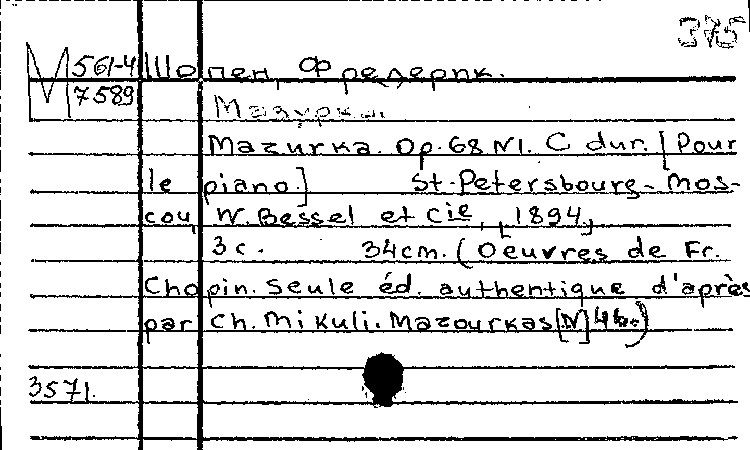 375
М 561-4 Шопен, Фредерик.
7589
Мазурка.
Mazurka. Op. 68 N1. C dur. [Pour
le piano.] St-Petersbourg-Mos-
cou, W. Bessel et Cie, [1894]
3 с. 34cm. (Oeuvres de Fr.
Chopin. Seule éd. authentique d'après
par Ch. Mikuli. Mazourkas [N]
3571.